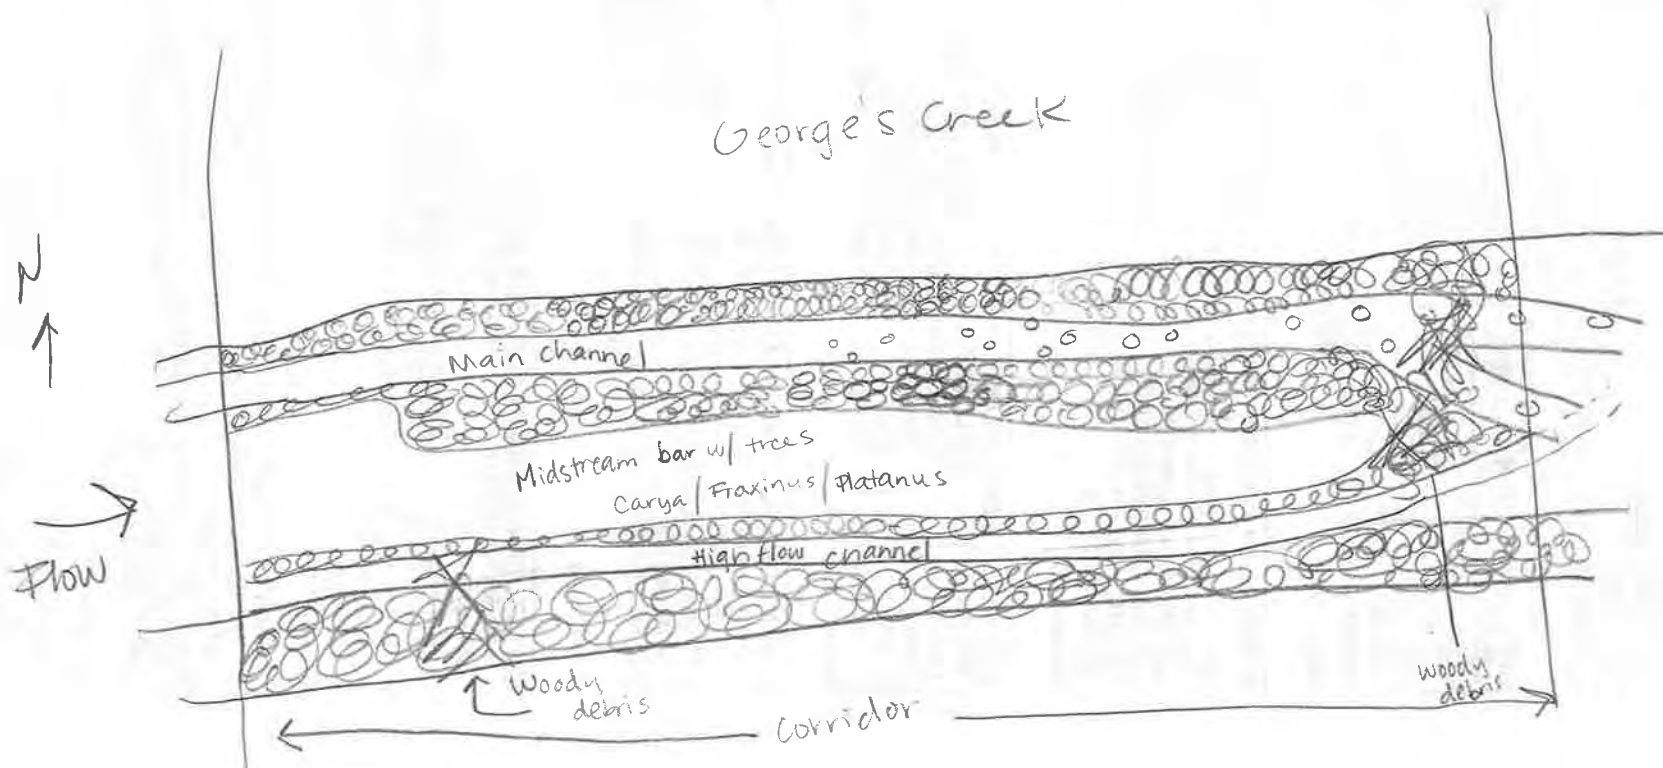 George's Creek
N
Main channel
Midstream bar w/ trees
Carya / Fraxinus / Platanus
Flow
High flow channel
Woody
debris
Woody
debris
Corridor